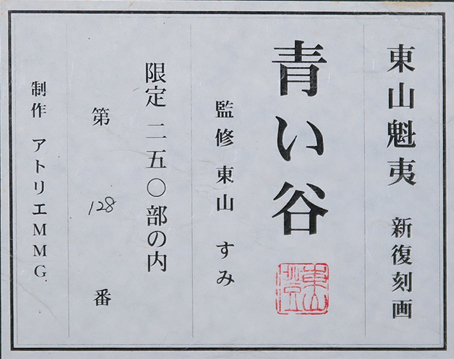 東山魁夷 新復刻画
青い谷
監修 東山 すみ
限定 二五〇部の内
第 128 番
制作 アトリエMMG.